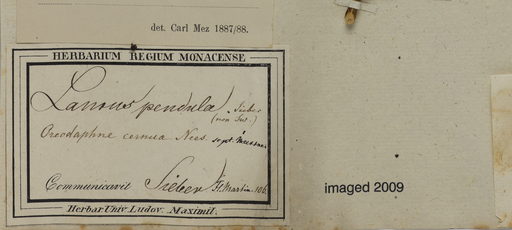 det. Carl Mez 1887/88.
HERBARIUM REGIUM MONACENSE
Laurus pendula. Sieber
(non Sw.)
Oreodaphne cernua Nees sept. Meissner
Communicavit Sieber Fl. Martin. 106.
Herbar. Univ. Ludov. Maximil.
imaged 2009